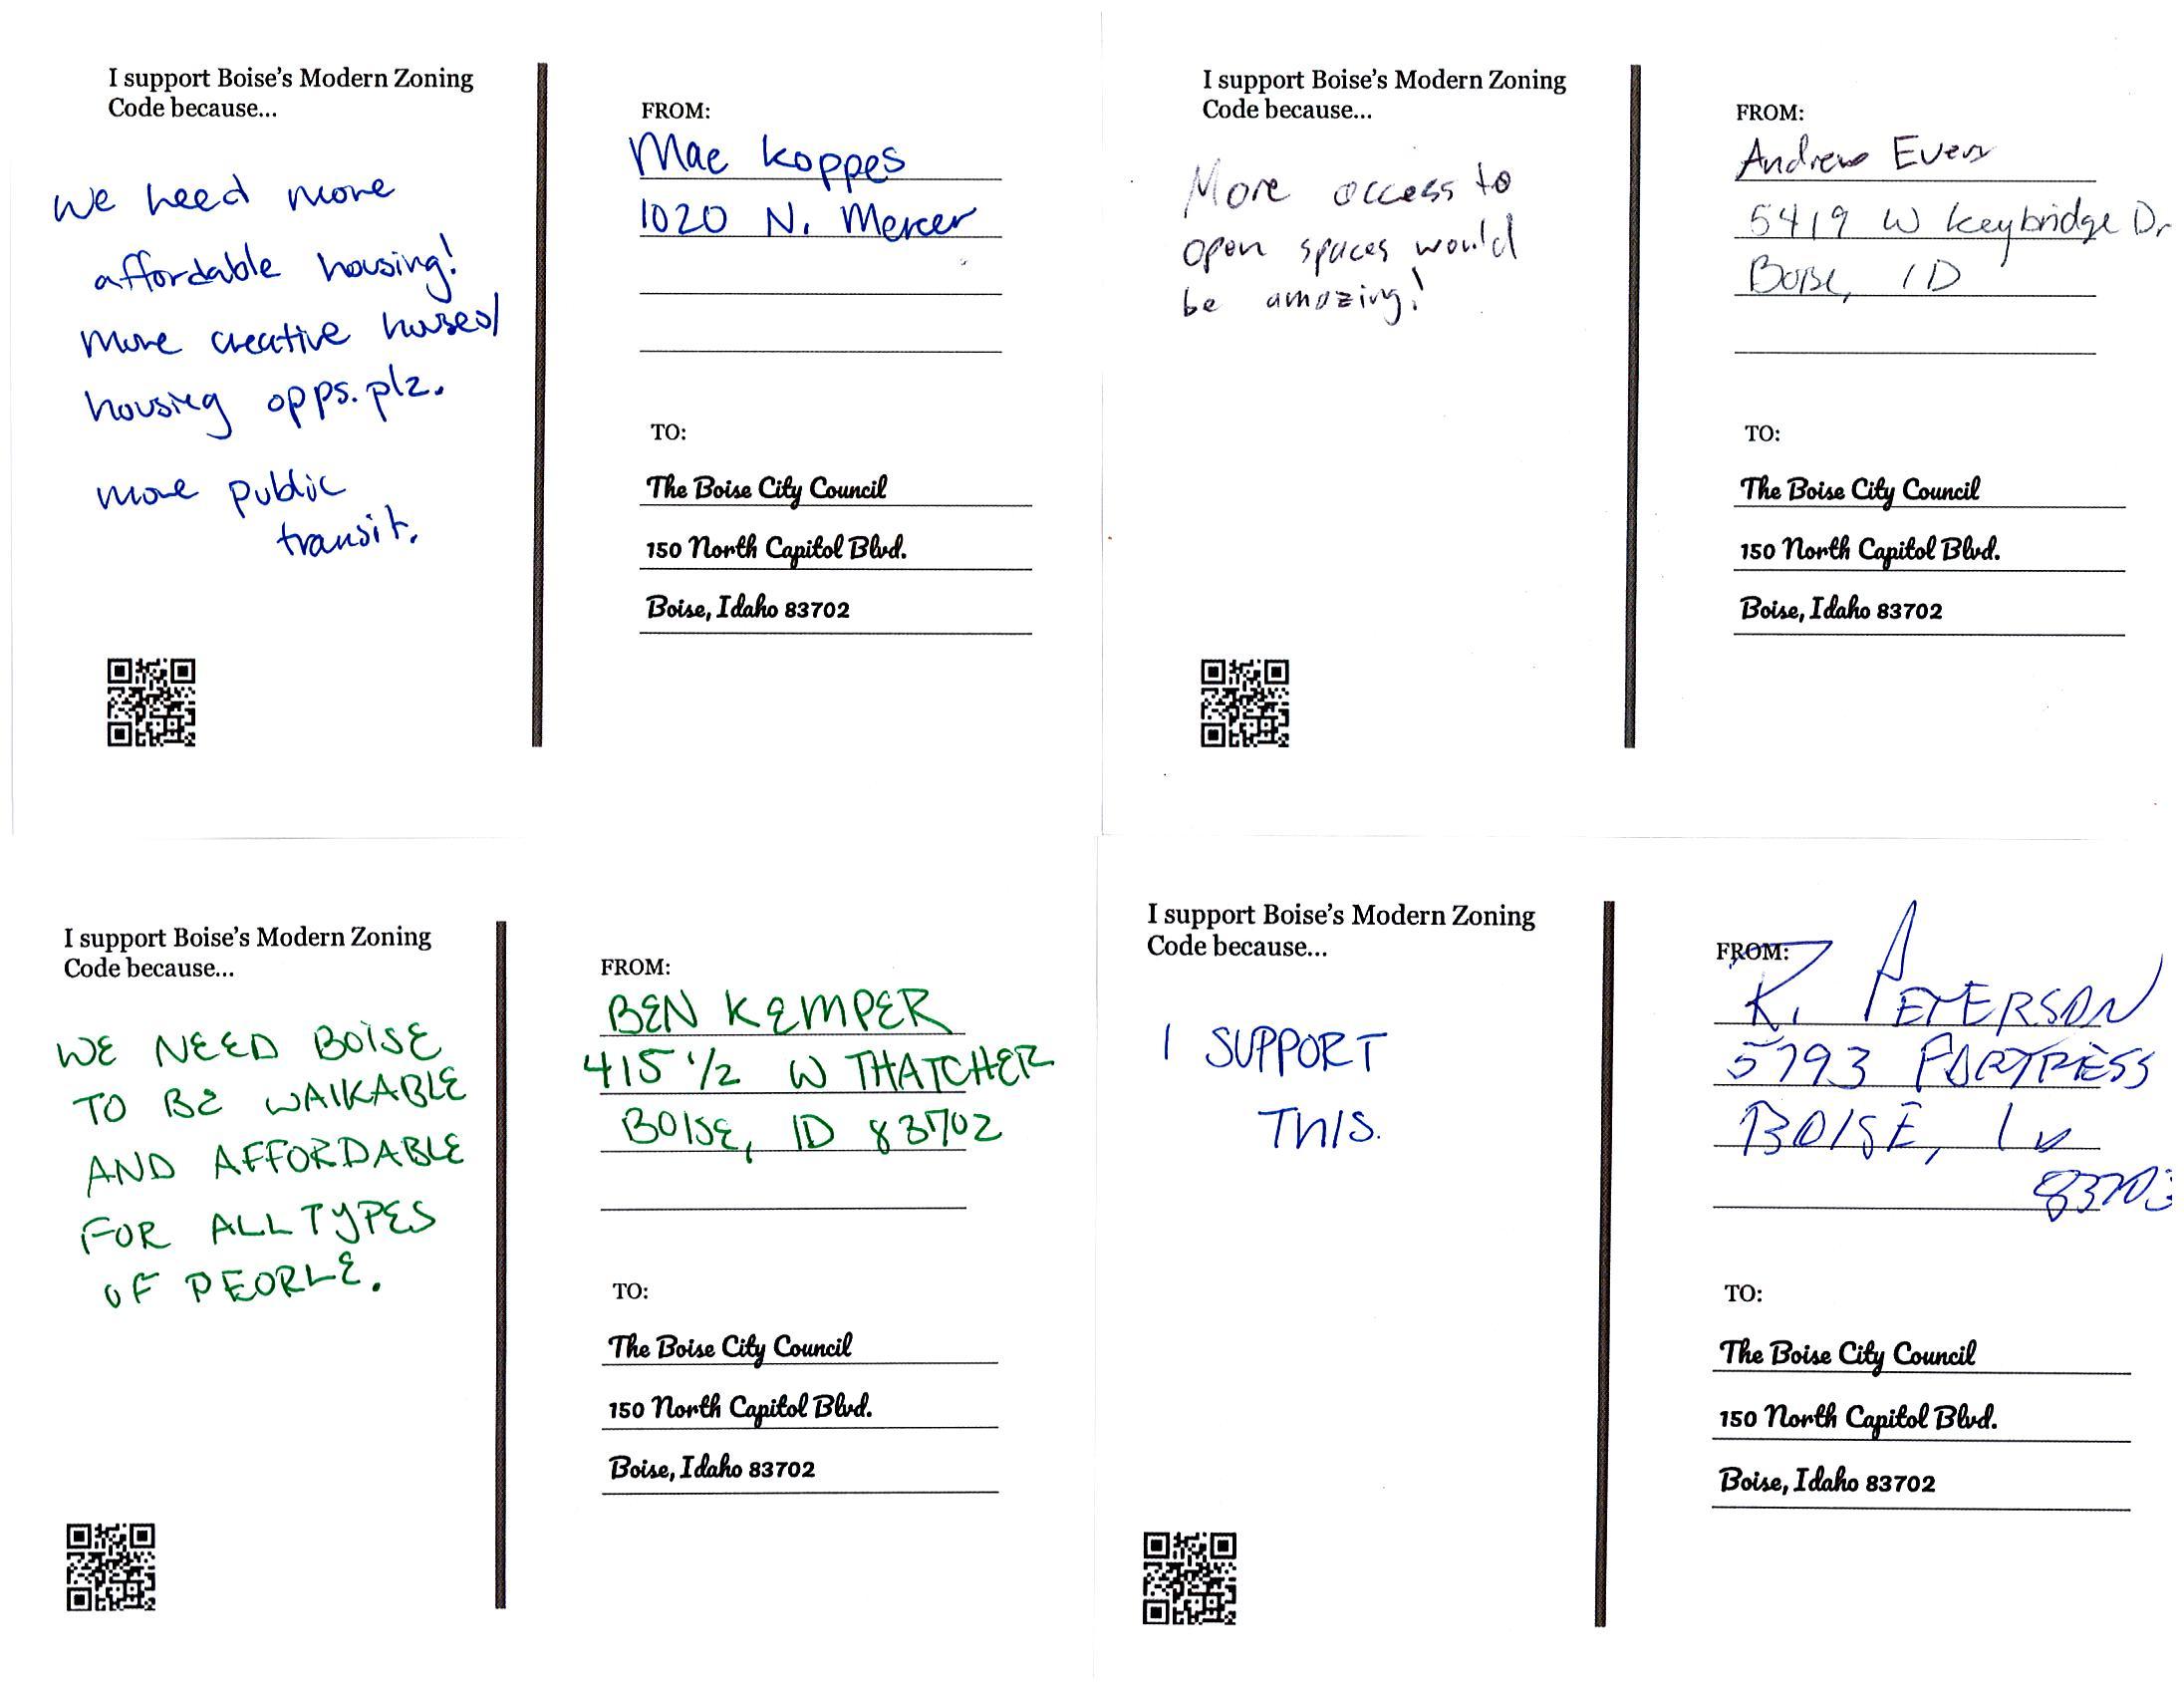 I support Boise's Modern Zoning
Code because...
we need more
affordable housing!
more creative houses/
housing opps. plz.
more public
transit.
FROM:
Mae Koppes
1020 N. Mercer
TO:
The Boise City Council
150 North Capitol Blvd.
Boise, Idaho 83702
I support Boise's Modern Zoning
Code because...
More access to
open spaces would
be amazing!
FROM:
Andrew Evers
5419 W Keybridge Dr
Boise, ID
TO:
The Boise City Council
150 North Capitol Blvd.
Boise, Idaho 83702
I support Boise's Modern Zoning
Code because...
WE NEED BOISE
TO BE WALKABLE
AND AFFORDABLE
FOR ALL TYPES
OF PEOPLE.
FROM:
BEN KEMPER
415 1/2 W THATCHER
BOISE, ID 83702
TO:
The Boise City Council
150 North Capitol Blvd.
Boise, Idaho 83702
I support Boise's Modern Zoning
Code because...
I SUPPORT
THIS.
FROM:
K. PETERSON
5793 FORTRESS
BOISE, ID
83703
TO:
The Boise City Council
150 North Capitol Blvd.
Boise, Idaho 83702